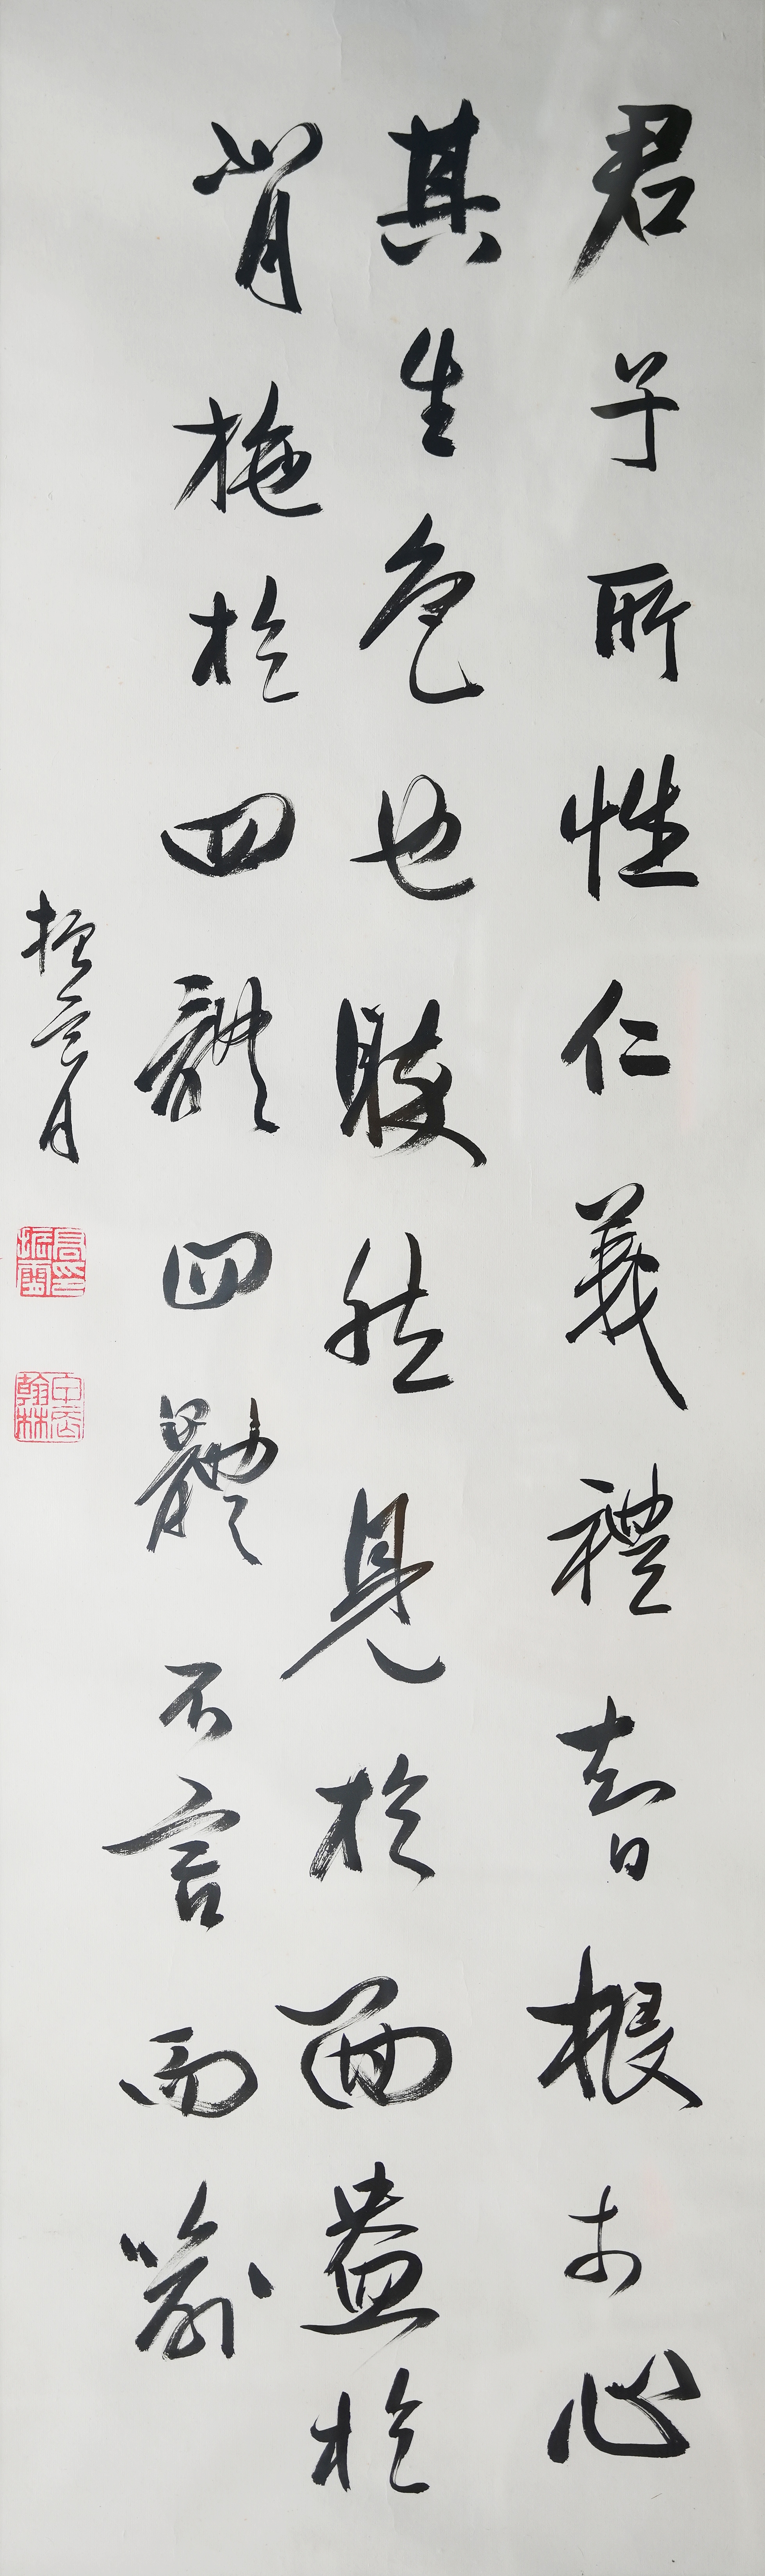 君子所性仁義禮智根於心
其生色也睟然見於面盎於
背施於四體四體不言而喻
振霄